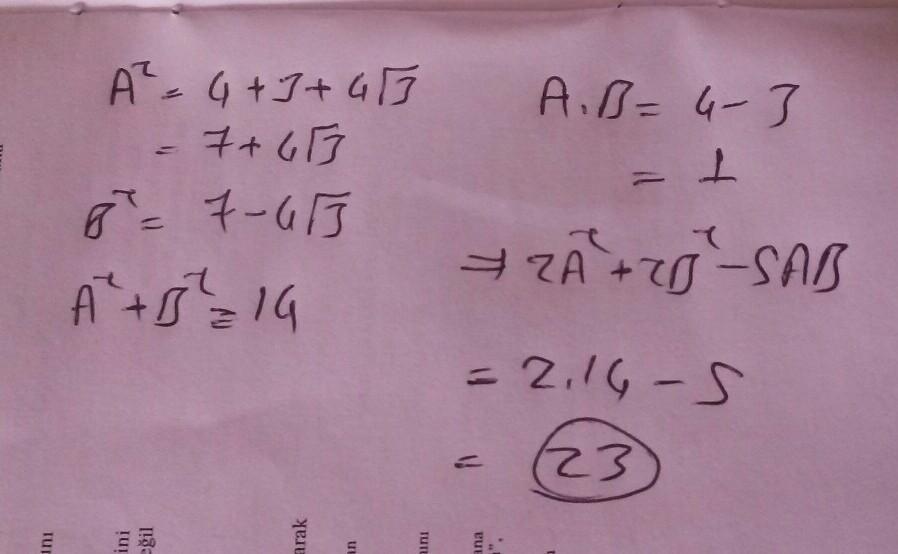 A² = 4 + 3 + 4√3
= 7 + 4√3
B² = 7 - 4√3
A² + B² = 14
A.B = 4 - 3
= 1
⇒ 2A² + 2B² - 5AB
= 2.14 - 5
= 23
ını
ini
eğil
arak
an
ını
ana